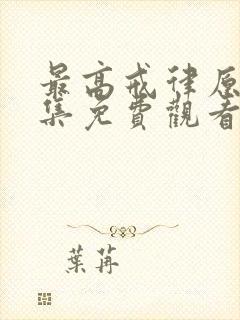 最高戒律原
集免費觀看
葉苒